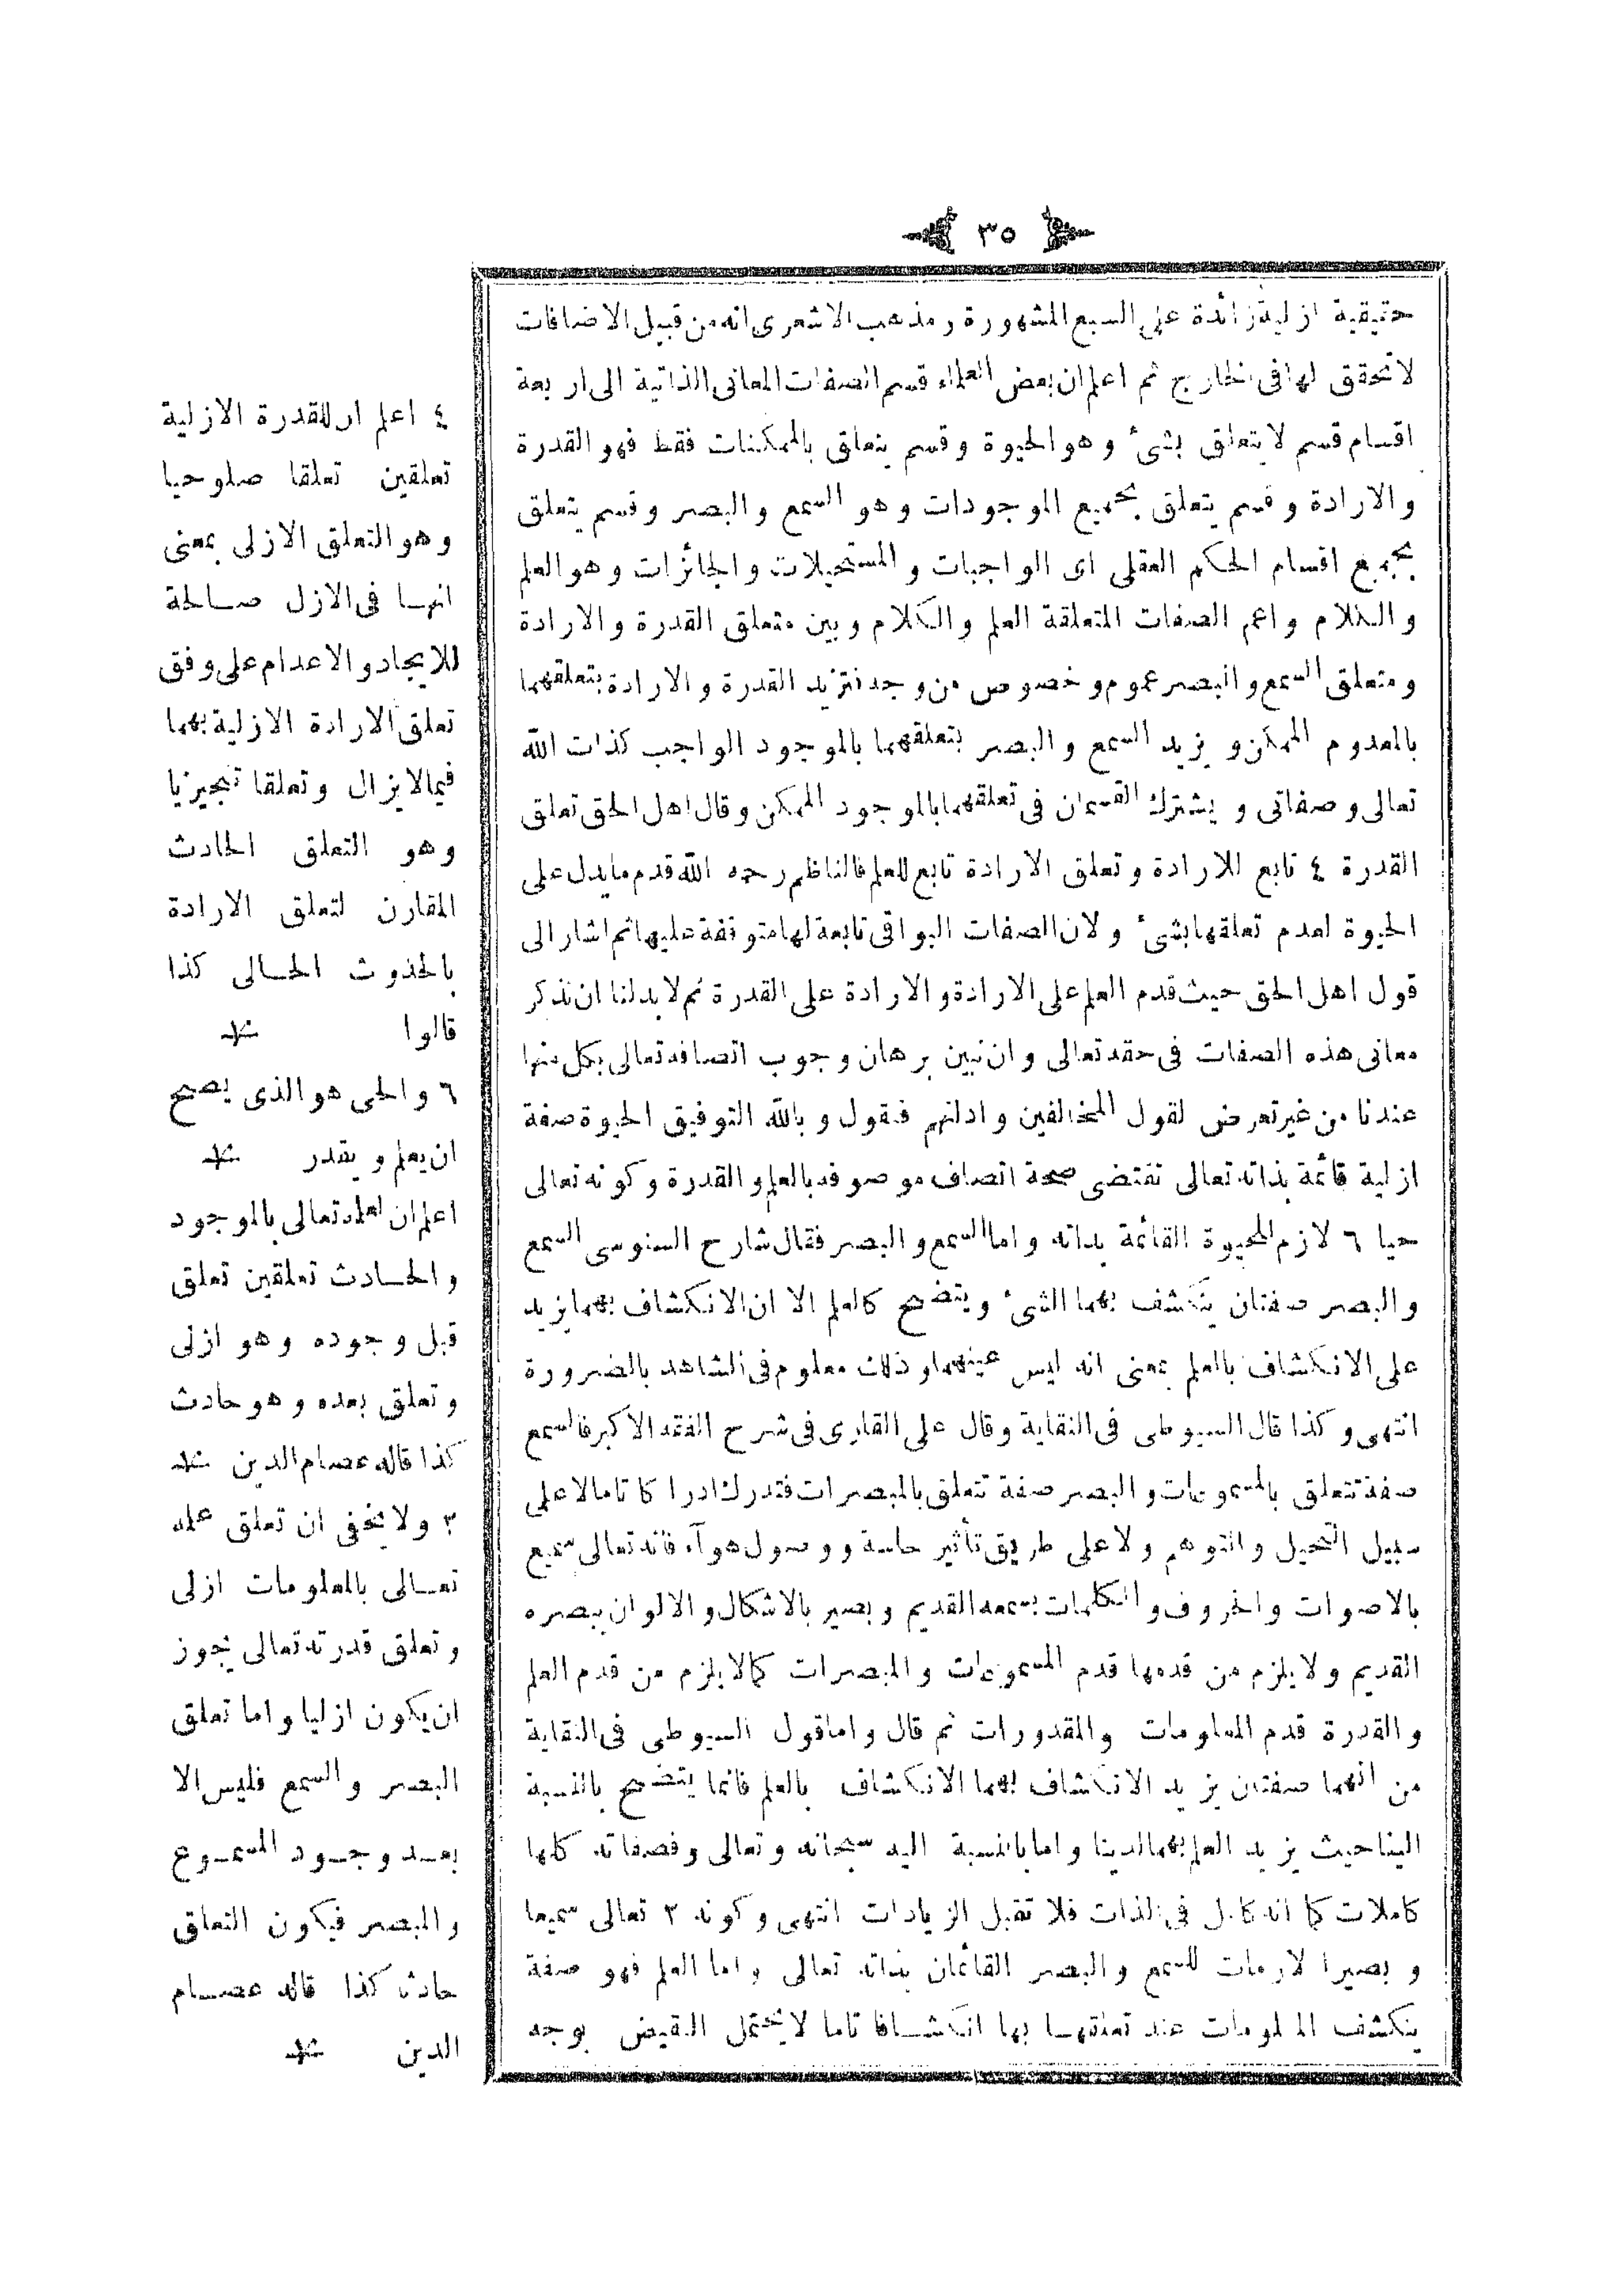 ٣٥
حقيقية ازلية زائدة على السبع المشهورة ومذهب الاشعرى انه من قبيل الاضافات
لا تحقق لها فى الخارج ثم اعلم ان بعض العلماء قسم الصفات المعانى الذاتية الى اربعة
اقسام قسم لا يتعلق بشئ وهو الحيوة وقسم يتعلق بالممكنات فقط فهو القدرة
والارادة وقسم يتعلق بجميع الموجودات وهو السمع والبصر وقسم يتعلق
بجميع اقسام الحكم العقلى اى الواجبات والمستحيلات والجائزات وهو العلم
والكلام واعم الصفات المتعلقة العلم والكلام وبين متعلق القدرة والارادة
ومتعلق السمع والبصر عموم وخصوص من وجه فتزيد القدرة والارادة بتعلقهما
بالمعدوم الممكن ويزيد السمع والبصر بتعلقهما بالموجود الواجب كذات الله
تعالى وصفاتى ويشترك القسمان فى تعلقهما بالموجود الممكن وقال اهل الحق تعلق
القدرة ٤ تابع للارادة وتعلق الارادة تابع للعلم فالناظم رحمه الله قدم ما يدل على
الحيوة لعدم تعلقها بشئ ولان الصفات البواقى تابعة لها متوقفة عليها ثم اشار الى
قول اهل الحق حيث قدم العلم على الارادة والارادة على القدرة ثم لا بد لنا ان نذكر
معانى هذه الصفات فى حقه تعالى وان نبين برهان وجوب اتصافه تعالى بكل منها
عندنا من غير تعرض لقول المخالفين وادلتهم فنقول وبالله التوفيق الحيوة صفة
ازلية قائمة بذاته تعالى تقتضى صحة اتصاف موصوفه بالعلم والقدرة وكونه تعالى
حيا ٦ لازم للحيوة القائمة بذاته واما السمع والبصر فقال شارح السنوسى السمع
والبصر صفتان ينكشف بهما الشئ ويتضح كالعلم الا ان الانكشاف بهما يزيد
على الانكشاف بالعلم بمعنى انه ليس عينهما وذلك معلوم فى الشاهد بالضرورة
انتهى وكذا قال السيوطى فى النقاية وقال على القارى فى شرح الفقه الاكبر فالسمع
صفة تتعلق بالمسموعات والبصر صفة تتعلق بالمبصرات فتدرك ادراكا تاما لا على
سبيل التخيل والتوهم ولا على طريق تأثير حاسة ووصول هوآء فانه تعالى سميع
بالاصوات والحروف والكلمات بسمعه القديم وبصير بالاشكال والالوان ببصره
القديم ولا يلزم من قدمها قدم المسموعات والمبصرات كما لا يلزم من قدم العلم
والقدرة قدم المعلومات والمقدورات ثم قال واما قول السيوطى فى النقاية
من انهما صفتان يزيد الانكشاف بهما الانكشاف بالعلم فانما يتضح بالنسبة
الينا حيث يزيد العلم بهما لدينا واما بالنسبة اليه سبحانه وتعالى وفصفاته كلها
كاملات كما انه كامل فى الذات فلا تقبل الزيادات انتهى وكونه ٣ تعالى سميعا
وبصيرا لازمات للسمع والبصر القائمان بذاته تعالى واما العلم فهو صفة
ينكشف المعلومات عند تعلقهـا بها انكشـافا تاما لا يحتمل النقيض بوجه
٤ اعلم ان للقدرة الازلية
تعلقين تعلقا صلوحيا
وهو التعلق الازلى بمعنى
انهـا فى الازل صـالحة
للايجاد والاعدام على وفق
تعلق الارادة الازلية بهما
فيما لا يزال وتعلقا تنجيزيا
وهو التعلق الحادث
المقارن لتعلق الارادة
بالحدوث الحـالى كذا
قالوا
٦ والحى هو الذى يصح
ان يعلم ويقدر
اعلم ان لعلمه تعالى بالموجود
والحـادث تعلقين تعلق
قبل وجوده وهو ازلى
وتعلق بعده وهو حادث
كذا قاله عصام الدين
٣ ولا يخفى ان تعلق علمه
تعـالى بالمعلومات ازلى
وتعلق قدرته تعالى يجوز
ان يكون ازليا واما تعلق
البصر والسمع فليس الا
بعـد وجـود المسمـوع
والمبصر فيكون التعلق
حادث كذا قاله عصـام
الدين